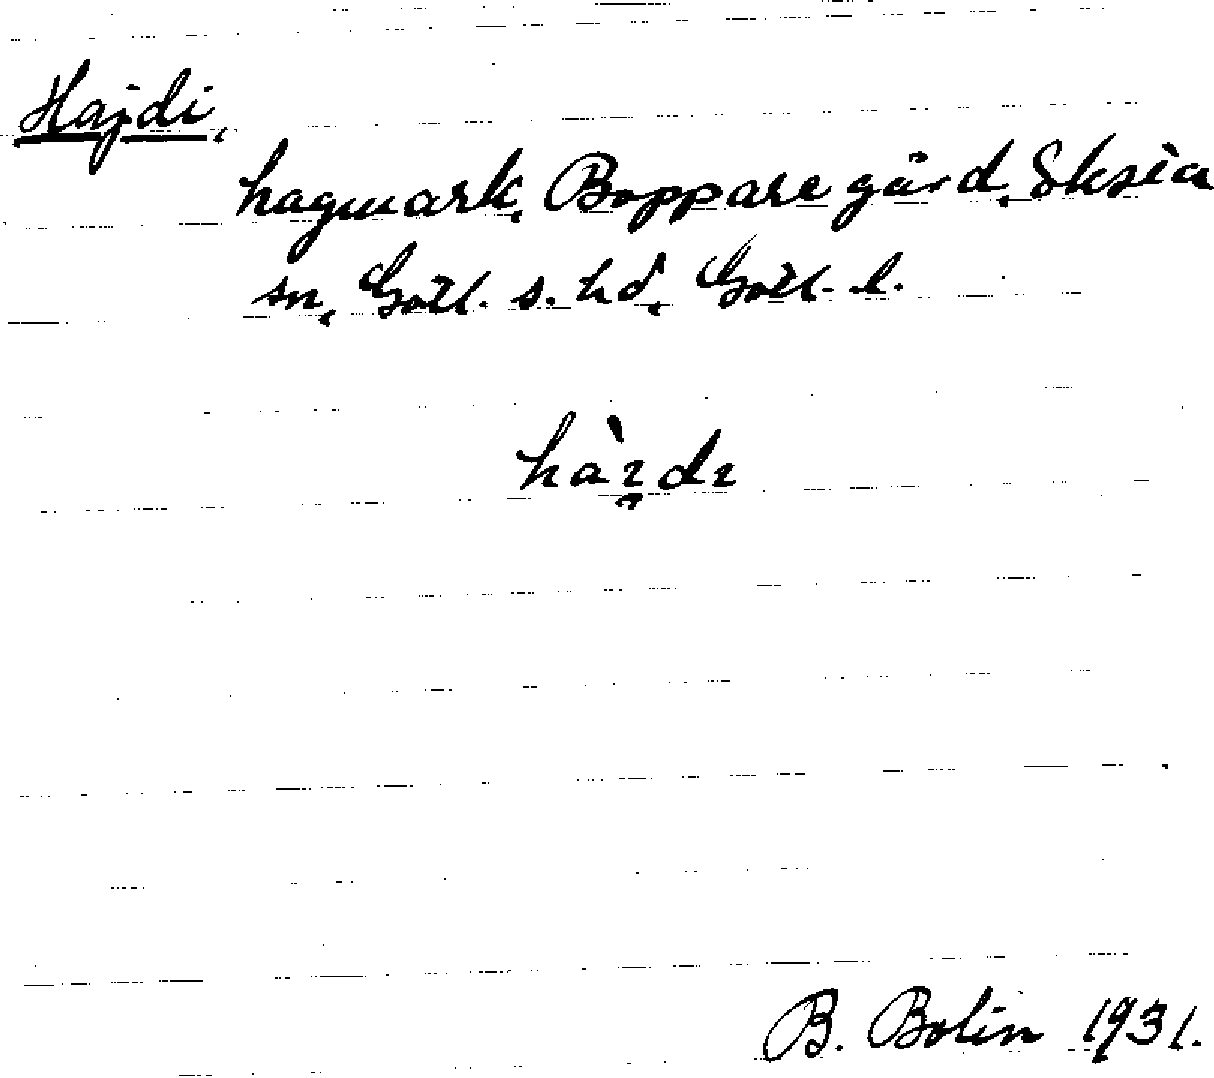 Hajdi,
hagmark, Boppare gård, Eksta
sn, Gotl. s. hd, Gotl. l.
hàɪ̯dɪ
B. Bolin 1931.